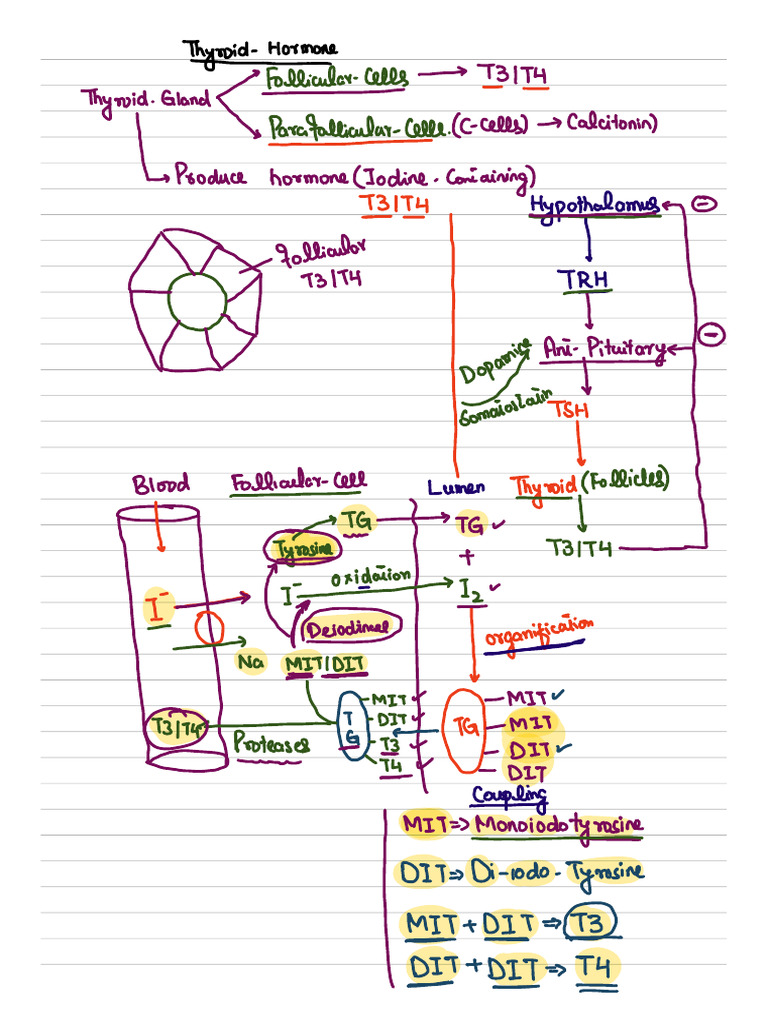 Thyroid - Hormone
Follicular - Cells → T3/T4
Thyroid. Gland
Parafollicular - Cells. (C-Cells) → Calcitonin)
Produce hormone (Iodine - Containing)
T3/T4
Hypothalamus ⊖
Follicular
T3/T4
TRH
⊖
Ant - Pituitary
Dopamine
Somatostatin
TSH
Blood
Follicular - Cell
Lumen
Thyroid (Follicles)
T3/T4
TG → TG ✓
Tyrosine
+
I⁻ oxidation I2 ✓
I⁻
Deiodinase
organification
Na
MIT/DIT
TG
MIT ✓
DIT ✓
T3 ✓
T4 ✓
T3/T4
Proteases
TG
MIT ✓
MIT
DIT ✓
DIT
Coupling
MIT => Monoiodotyrosine
DIT => Di-iodo-Tyrosine
MIT + DIT => T3
DIT + DIT => T4